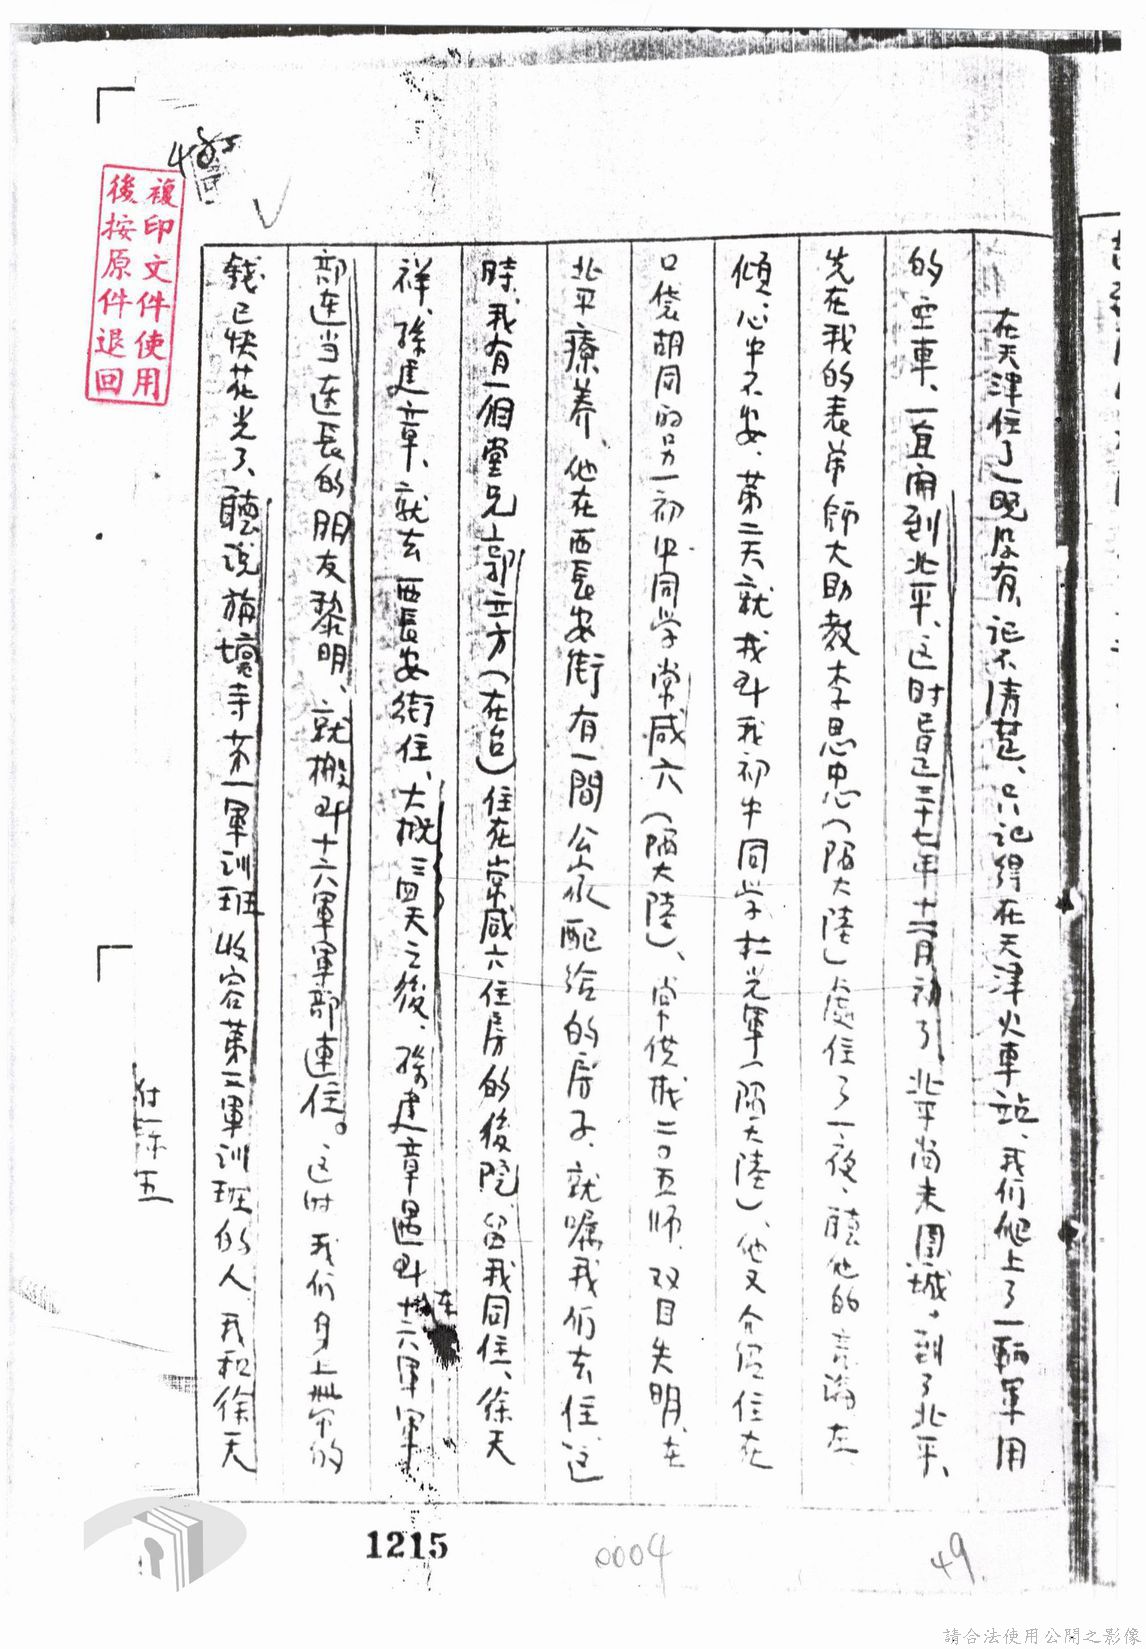 在天津住了一晚沒有、記不清楚、只記得在天津火車站、我们爬上了一輛軍用
的空車、一直開到北平、这时已是三十七年十二月初了、北平尚未圍城。到了北平、
先在我的表弟師大助教李思忠(陷大陸)處住了一夜、聽他的言論左
傾、心中不安、第二天就找到我初中同学杜光軍(陷大陸)、他又介绍住在
口袋胡同的另一初中同学常咸六(陷大陸)、常供职二〇五師、双目失明、在
北平療养、他在西長安街有一間公家配给的房子、就嘱我们去住、这
時、我有一個堂兄郭立方(在台)住在常咸六住房的後院、留我同住、徐天
祥、孫建章、就去西長安街住、大概三四天之後、孫建章遇到在十六軍軍
部連当連長的朋友黎明、就搬到十六軍軍部連住。这时我们身上带的
錢已快花光了、聽说旃壇寺第一軍训班收容第二軍训班的人、我和徐天
複印文件使用
後按原件退回
1215
0004
49
請合法使用公開之影像